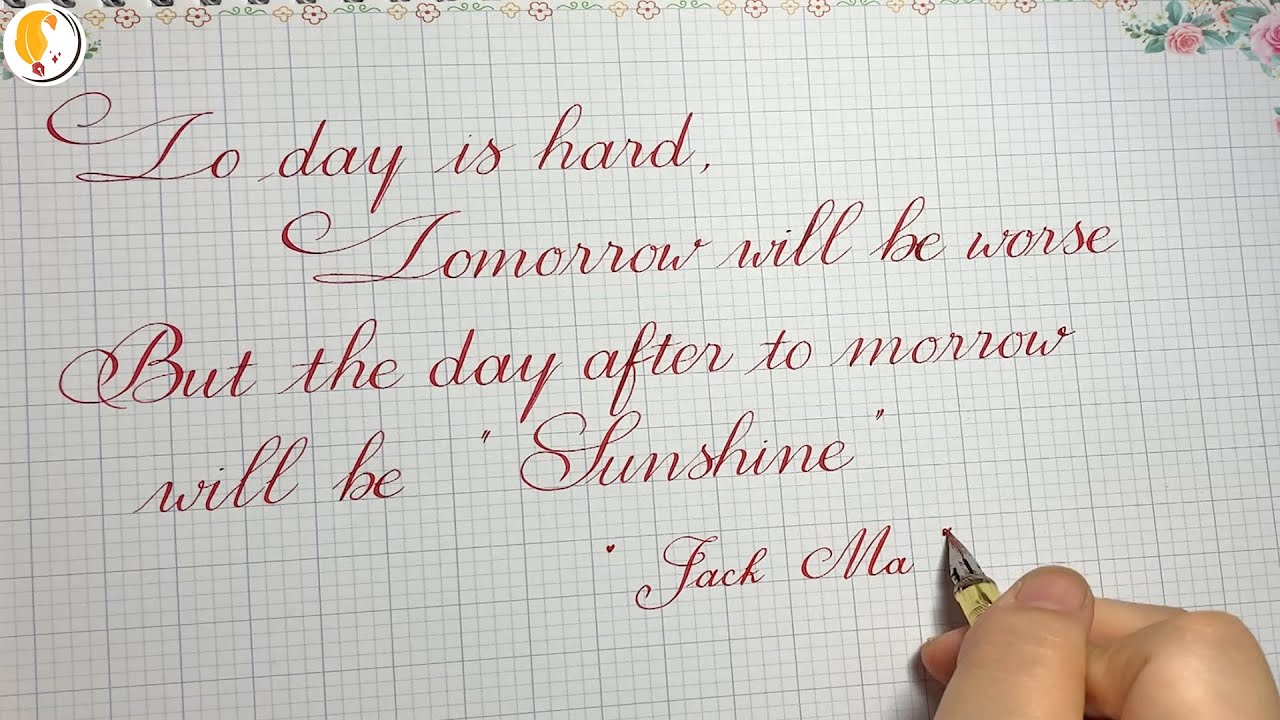 To day is hard,
Tomorrow will be worse
But the day after to morrow
will be "Sunshine"
Jack Ma